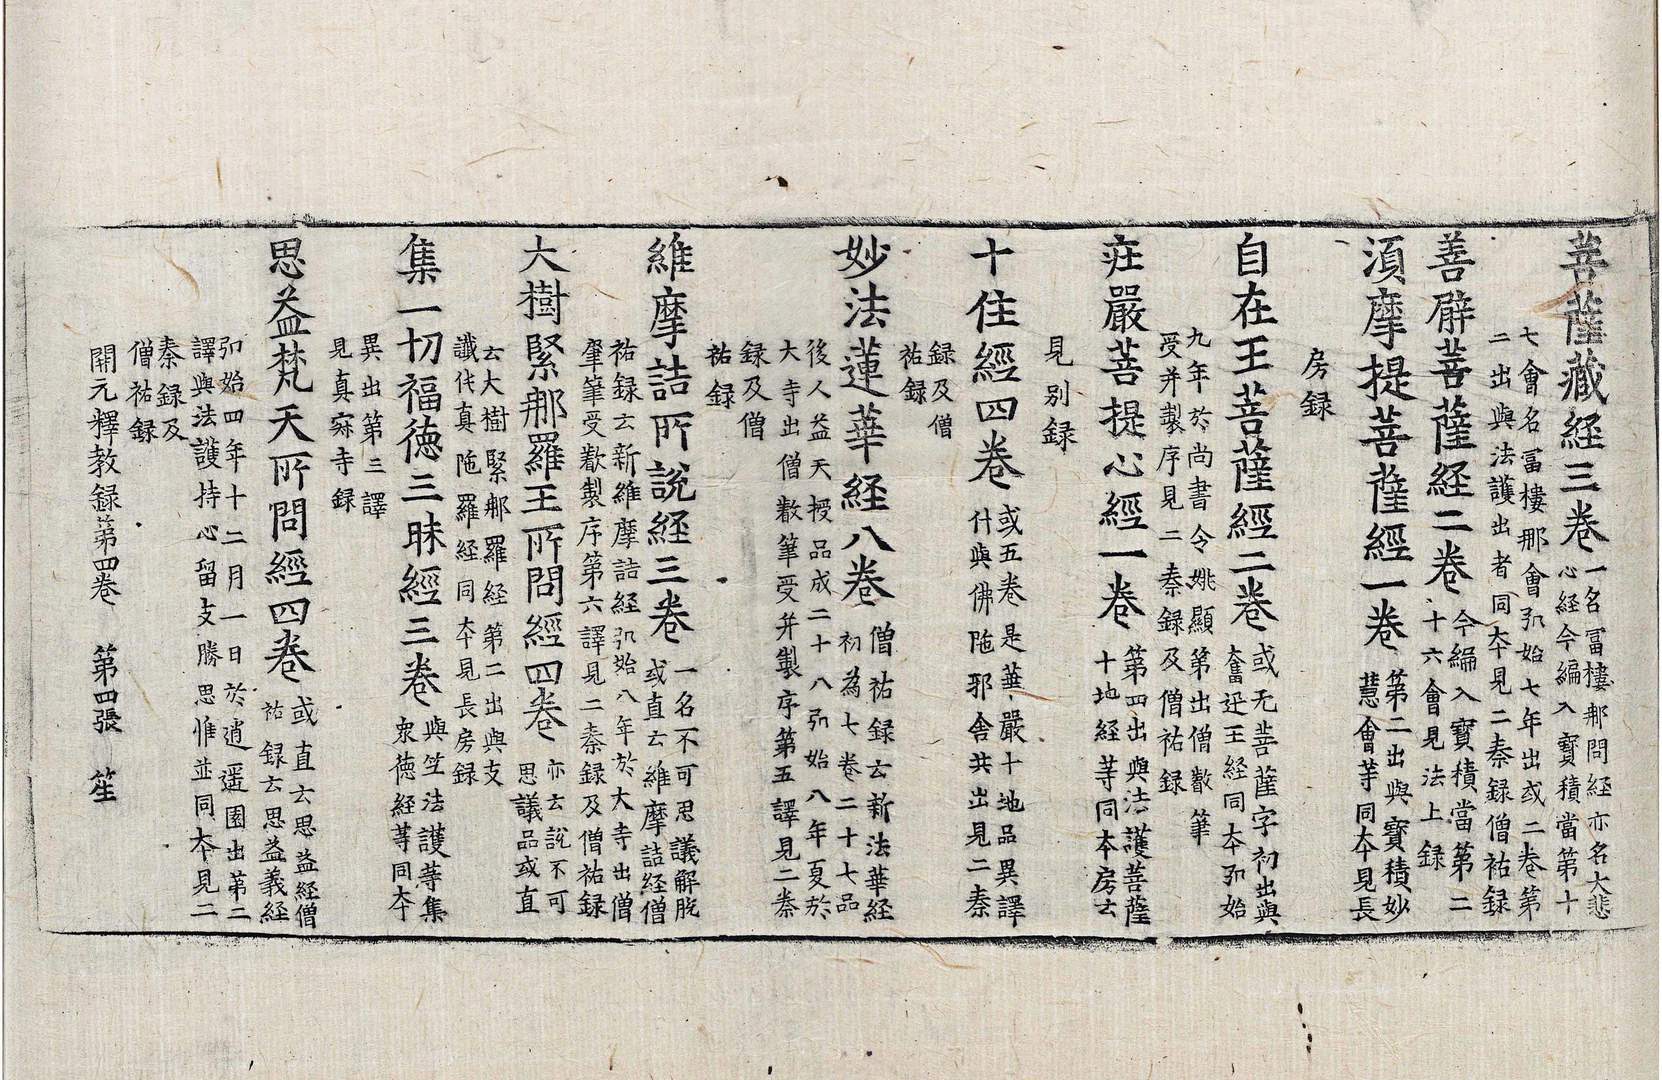 菩薩藏経三巻
一名冨樓那問経亦名大悲
心経今編入寳積當第十
七會名冨樓那會弘始七年出或二巻第
二出與法護出者同夲見二秦録僧祐録
善臂菩薩経二巻
今編入寳積當第二
十六會見法上録
湏摩提菩薩經一巻
第二出與寳積妙
慧會䓁同夲見長
房録
自在王菩薩經二巻
或无菩薩字初出與
奮迅王経同夲弘始
九年於尚書令姚顯第出僧叡筆
受并製序見二秦録及僧祐録
莊嚴菩提心經一巻
第四出與法護菩薩
十地経䓁同夲房云
見别録
十住經四巻
或五巻是華嚴十地品異譯
什與佛陁耶舎共出見二秦
録及僧
祐録
妙法蓮華経八巻
僧祐録云新法華経
初為七巻二十七品
後人益天授品成二十八弘始八年夏於
大寺出僧叡筆受并製序第五譯見二秦
録及僧
祐録
維摩詰所說経三巻
一名不可思議解脱
或直云維摩詰経僧
祐録云新維摩詰経弘始八年於大寺出僧
肇筆受叡製序第六譯見二秦録及僧祐録
大樹緊那羅王所問經四巻
亦云說不可
思議品或直
云大樹緊那羅経第二出與支
讖伅真陁羅経同夲見長房録
集一切福徳三昧經三巻
與竺法護䓁集
衆徳経䓁同夲
異出第三譯
見真寂寺録
思益梵天所問經四巻
或直云思益経僧
祐録云思益義経
弘始四年十二月一日於逍遥園出第二
譯與法護持心留支勝思惟並同夲見二
秦録及
僧祐録
開元釋教録第四巻　第四張　笙